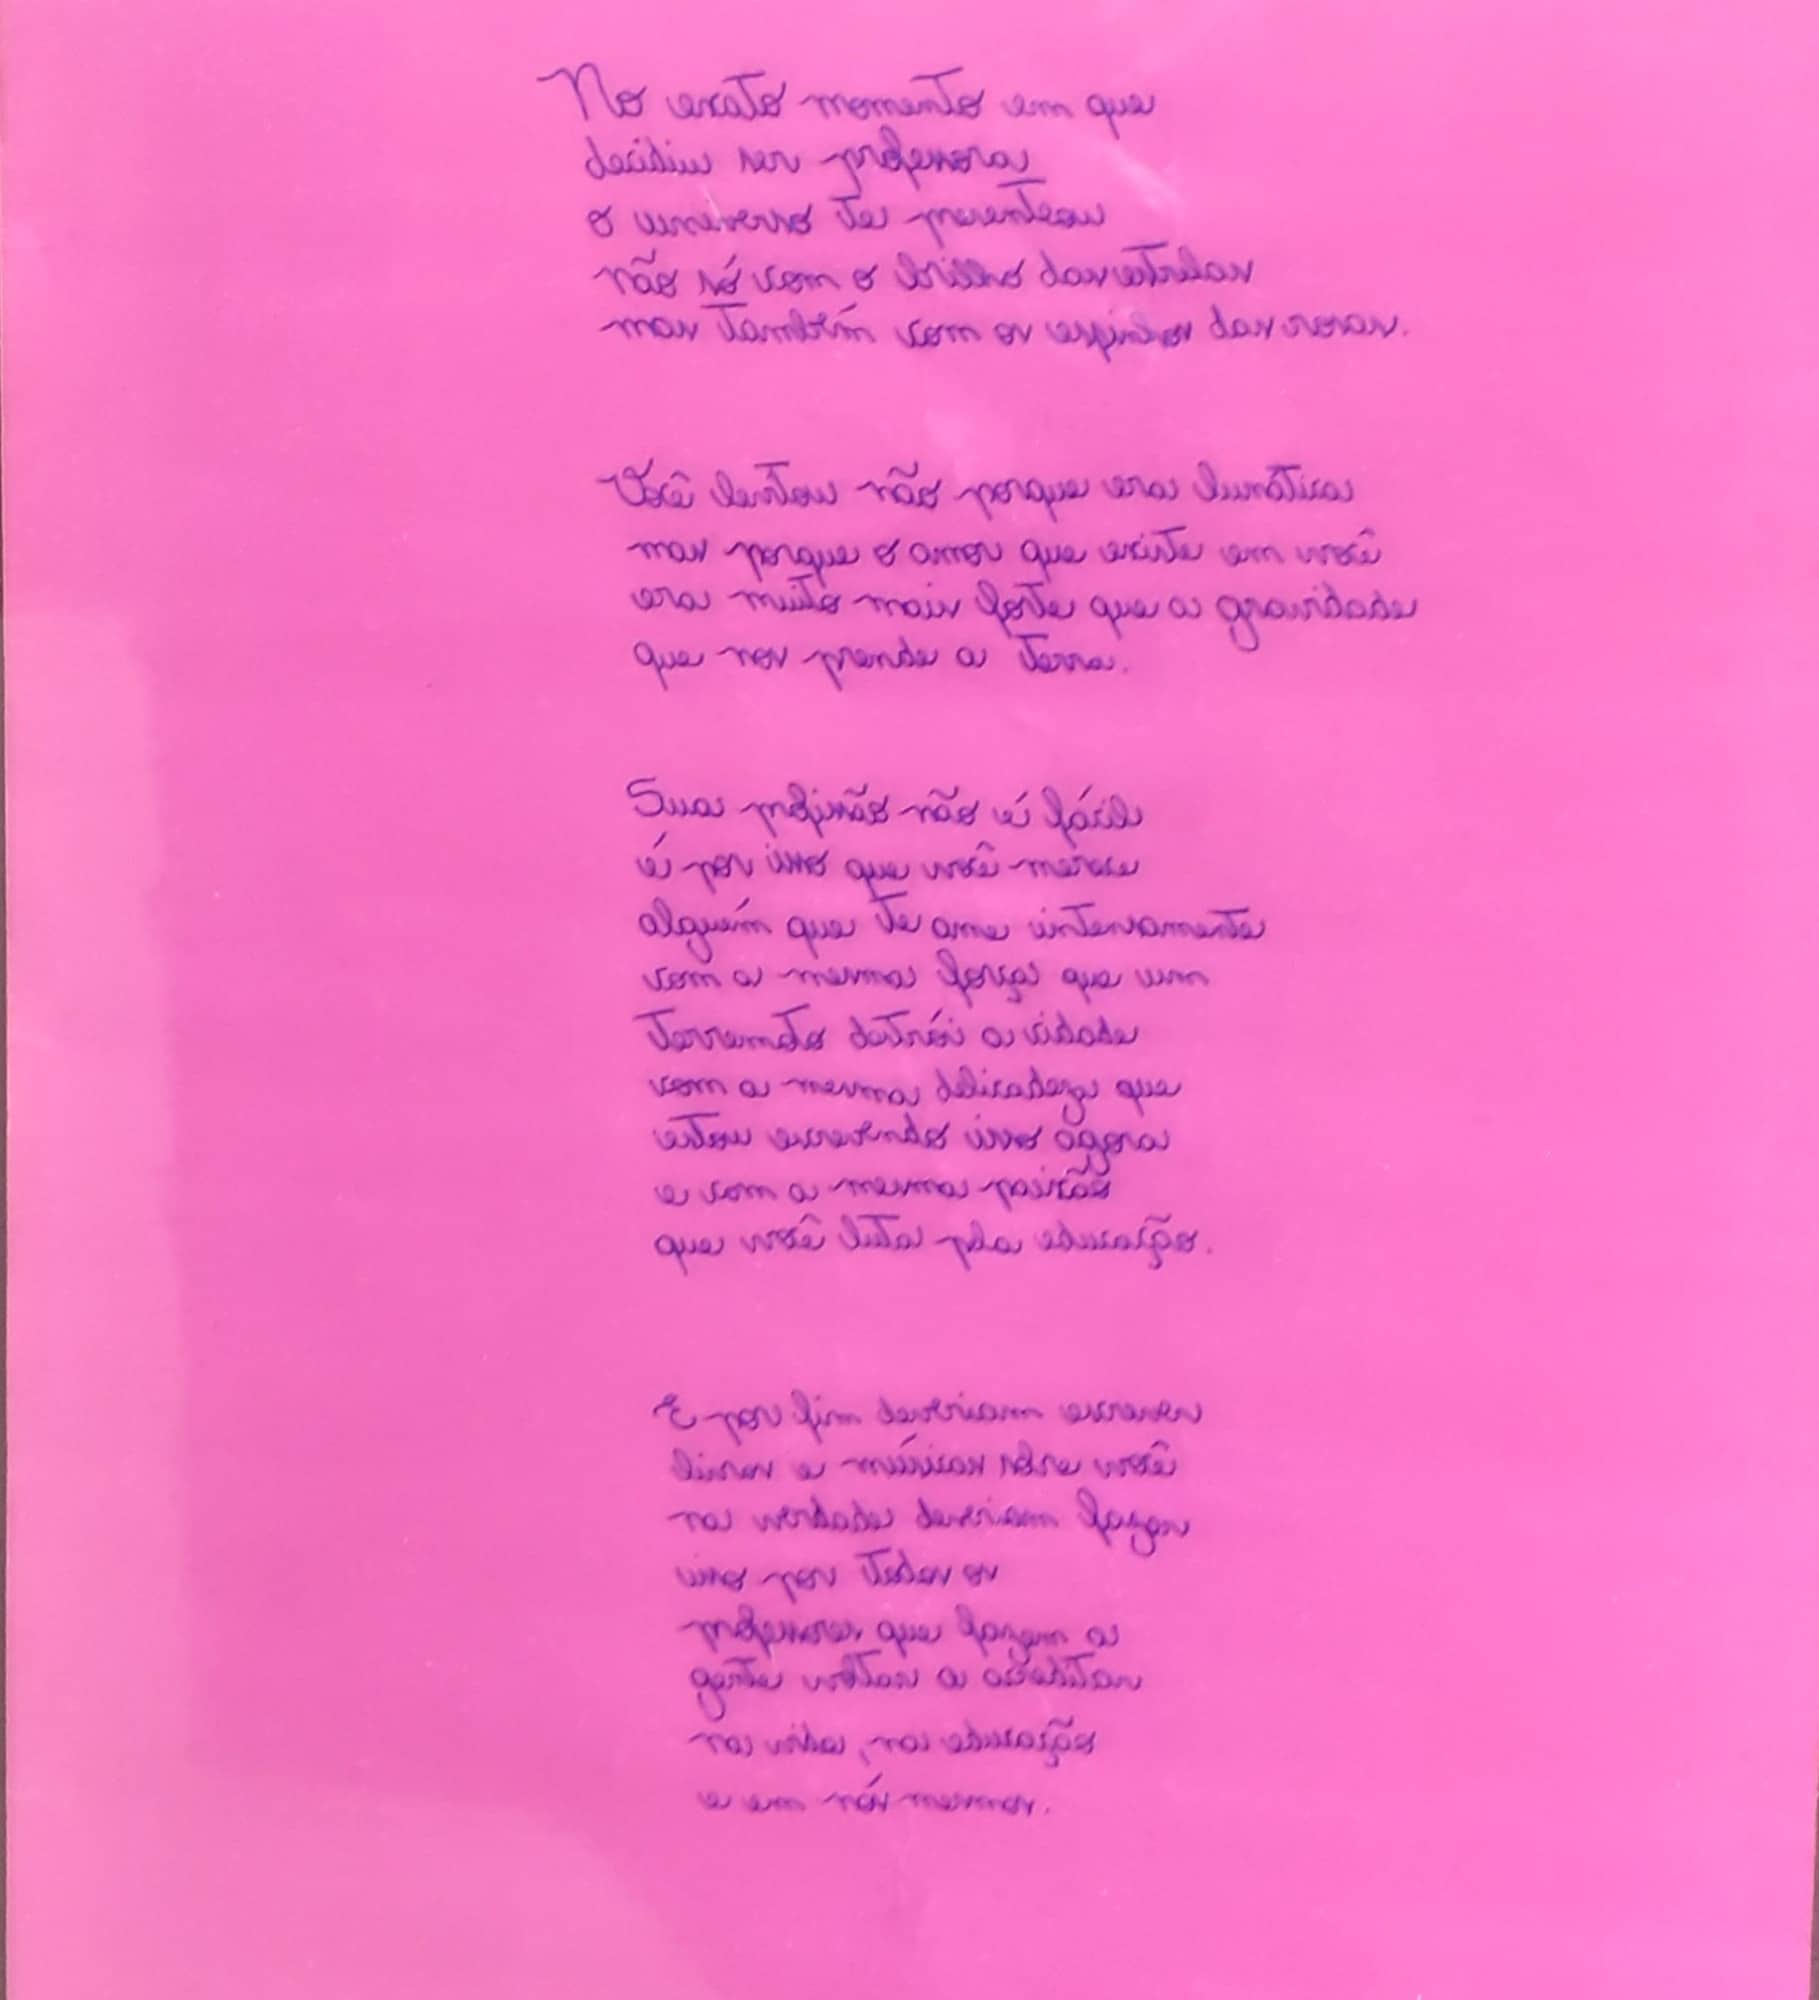 No exato momento em que
decidiu ser professora
o universo te presenteou
não só com o brilho das estrelas
mas também com os espinhos das rosas.
Você lecionou não porque era lunática
mas porque o amor que existe em você
era muito mais forte que a gravidade
que nos prende a terra.
Sua profissão não é fácil
é por isso que você merece
alguém que te ame intensamente
com a mesma força que um
terremoto destrói a cidade
com a mesma delicadeza que
estou escrevendo isso agora
e com a mesma paixão
que você luta pela educação.
E por fim deveriam escrever
livros e músicas sobre você
na verdade deveriam fazer
isso por todos os
professores que fazem a
gente voltar a acreditar
na vida, na educação
e em nós mesmos.